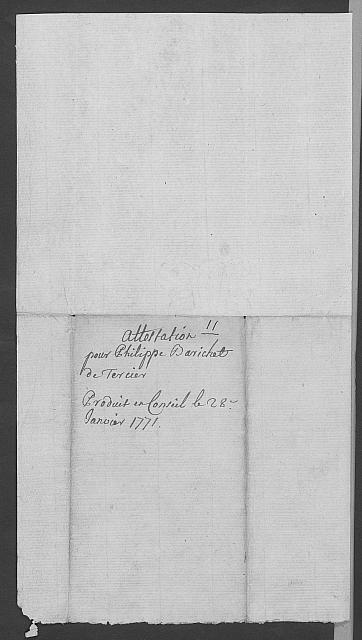 Attestation 11
pour Philippe Darichet
de Tercier
Produit en Conseil le 28e
Janvier 1771.